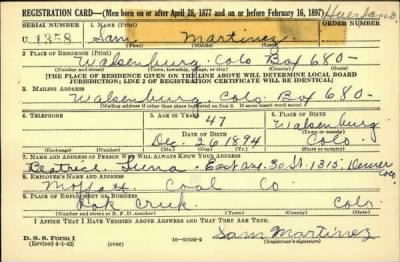 REGISTRATION CARD—(Men born on or after April 28, 1877 and on or before February 16, 1897)
SERIAL NUMBER 1. NAME (Print)
U 1358 Sam Martinez
(First) (Middle) (Last)
2. PLACE OF RESIDENCE (Print)
Walsenburg Colo Box 680-
(Number and street) (Town, township, village, or city) (County) (State)
[THE PLACE OF RESIDENCE GIVEN ON THE LINE ABOVE WILL DETERMINE LOCAL BOARD
JURISDICTION; LINE 2 OF REGISTRATION CERTIFICATE WILL BE IDENTICAL]
3. MAILING ADDRESS
Walsenburg Colo Box 680-
[Mailing address if other than place indicated on line 2. If same insert word same]
4. TELEPHONE 5. AGE IN YEARS 6. PLACE OF BIRTH
47 Walsenburg
DATE OF BIRTH (Town or county)
Dec 26 1894 Colo
(Exchange) (Number) (Mo.) (Day) (Yr.) (State or country)
7. NAME AND ADDRESS OF PERSON WHO WILL ALWAYS KNOW YOUR ADDRESS
Beatrice 1315 Denver
Colo
8. EMPLOYER'S NAME AND ADDRESS
Moffatt Coal Co
9. PLACE OF EMPLOYMENT OR BUSINESS
Oak Creek Colo.
(Number and street or R. F. D. number) (Town) (County) (State)
I AFFIRM THAT I HAVE VERIFIED ABOVE ANSWERS AND THAT THEY ARE TRUE.
D. S. S. Form 1
(Revised 4-1-42) (over) Sam Martinez
(Registrant's signature)